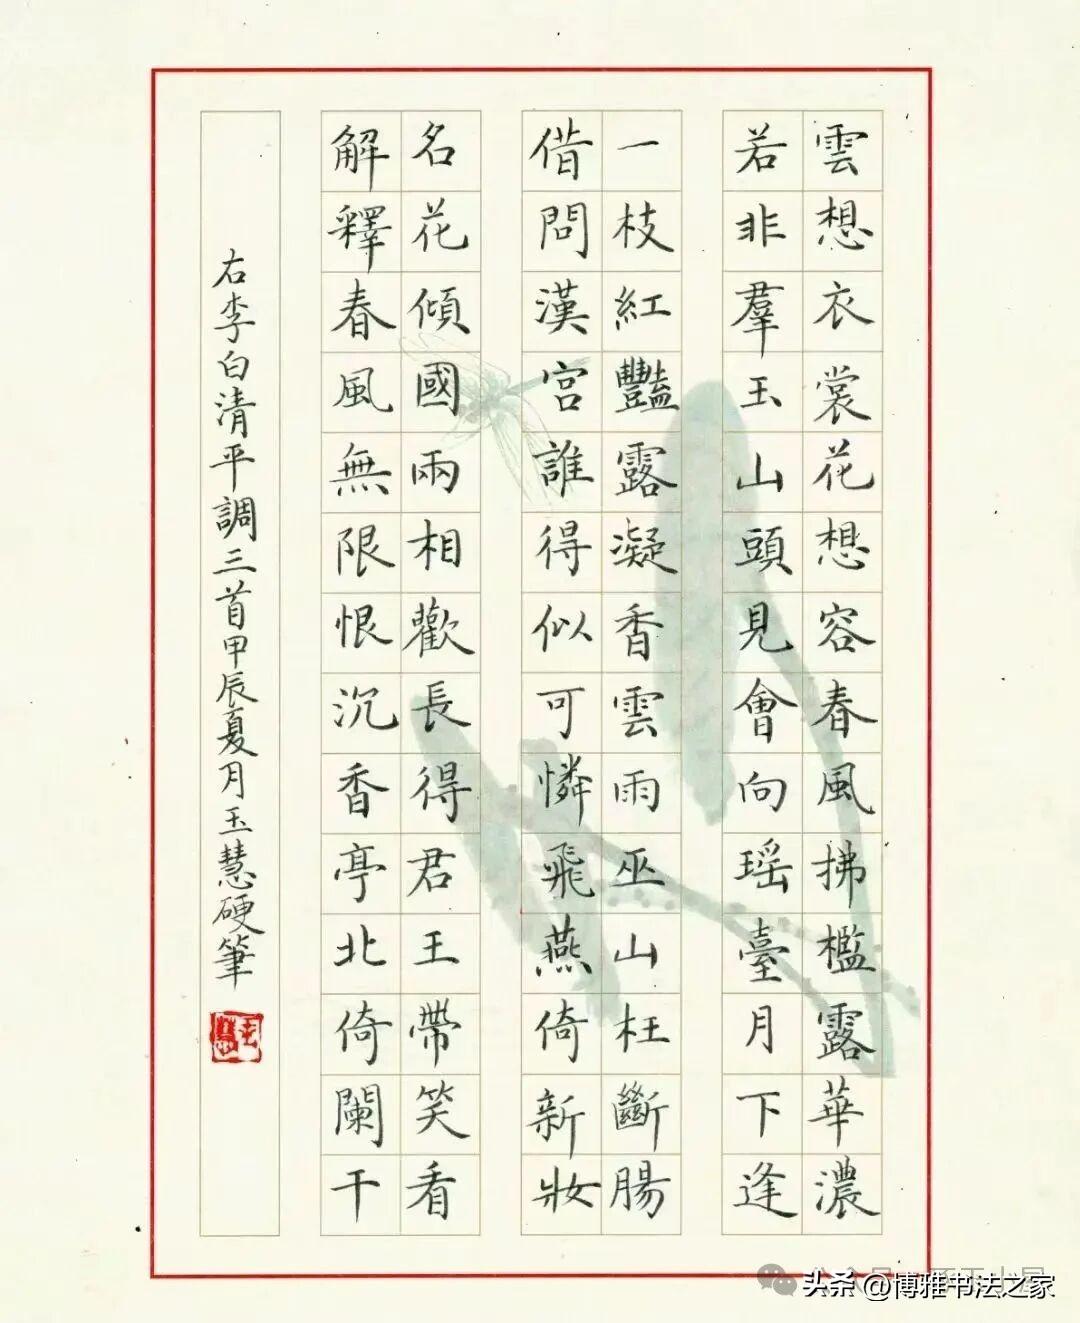 雲想衣裳花想容春風拂檻露華濃
若非羣玉山頭見會向瑶臺月下逢
一枝紅豔露凝香雲雨巫山枉斷腸
借問漢宮誰得似可憐飛燕倚新妝
名花傾國兩相歡長得君王帶笑看
解釋春風無限恨沉香亭北倚闌干
右李白清平調三首甲辰夏月玉慧硬筆
玉慧
头条@博雅书法之家